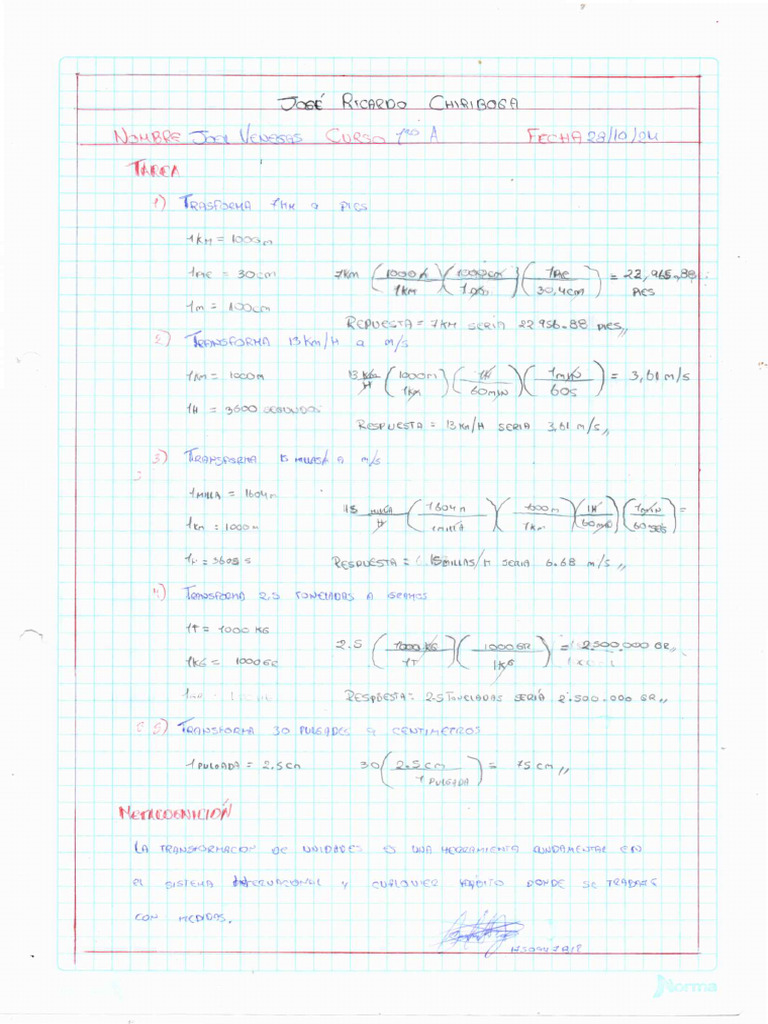 JOSÉ RICARDO CHIRIBOGA
NOMBRE JOEL VENEGAS CURSO 1ro A FECHA 28/10/24
TAREA
1) TRASFORMA 7KM a PIES
1KM = 1000m
1PIE = 30cm 7KM (1000m/1KM)(100cm/1m)(1PIE/30,4cm) = 22,965,88 PIES
1m = 100cm
REPUESTA = 7KM SERIA 22 956.88 PIES,,
2) TRANSFORMA 13Km/H a m/s
1Km = 1000m 13 Km/H (1000m/1Km)(1H/60min)(1min/60s) = 3,61 m/s
1H = 3600 SEGUNDOS
RESPUESTA = 13Km/H SERIA 3,61 m/s,,
3) TRANSFORMA 15 MILLAS/ A m/s
1MILLA = 1604m
15 MILLA/H (1604m/1MILLA)(1000m/1Km)(1H/60min)(1min/60SEG) =
1Km = 1000m
= 3605 s RESPUESTA = 15MILLAS/H SERIA 6.68 m/s,,
4) TRANSFORMA 2.5 TONELADAS A GRAMOS
1T = 1000 KG
2.5 (1000KG/1T)(1000GR/1KG) = 2.500.000 GR,,
1KG = 1000GR
RESPUESTA: 2.5 TONELADAS SERÍA 2.500.000 GR,,
5) TRANSFORMA 30 PULGADES a CENTIMETROS
1PULGADA = 2.5cm 30 (2.5cm/1PULGADA) = 75cm,,
METACOGNICIÓN
LA TRANSFORMACION DE UNIDADES ES UNA HERRAMIENTA FUNDAMENTAL EN
EL SISTEMA INTERNACIONAL Y CUALQUIER ÁMBITO DONDE SE TRABAJE
CON MEDIDAS.
Norma